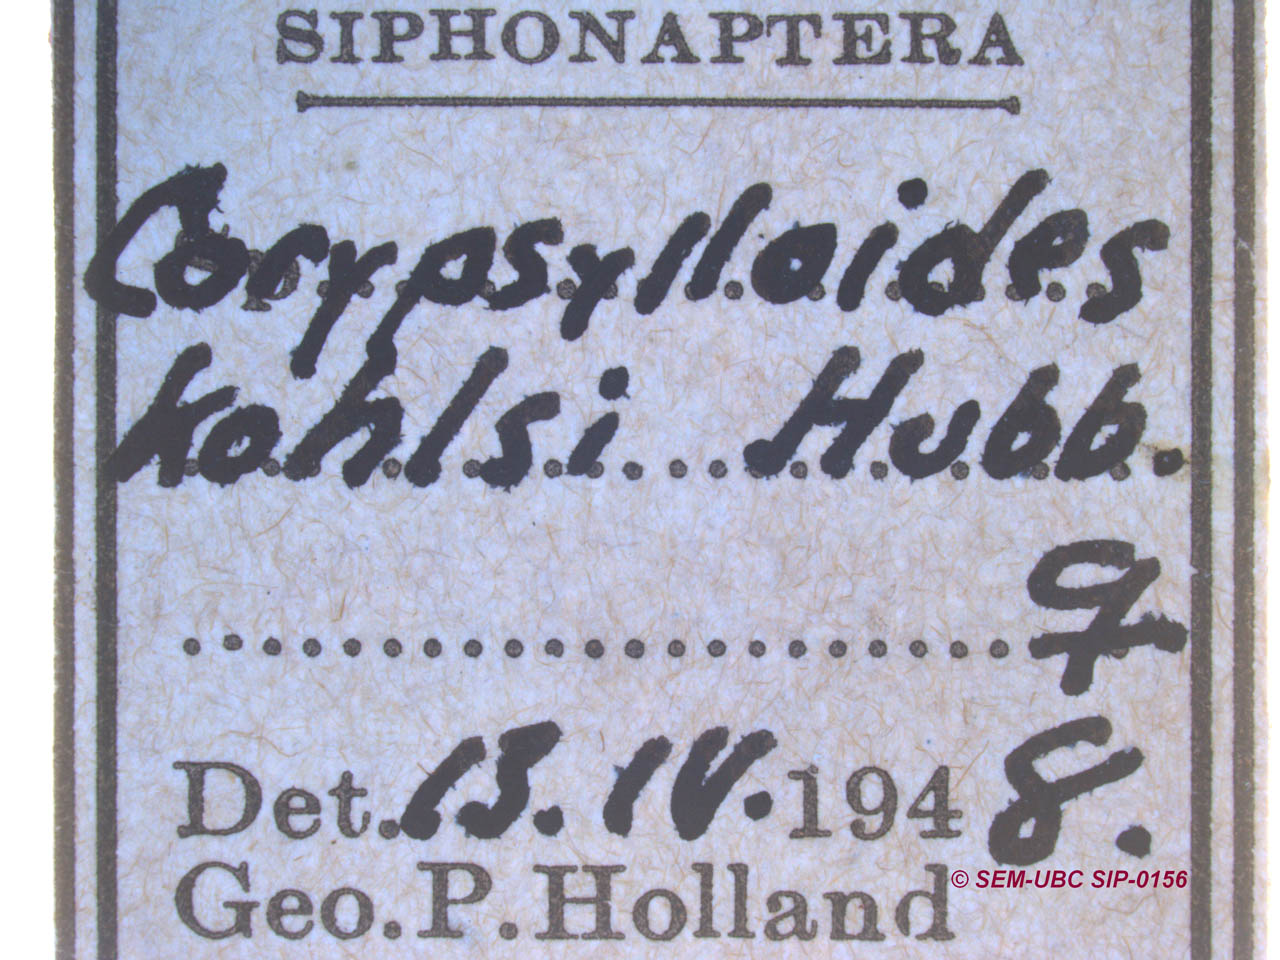 SIPHONAPTERA
Corypsylloides
kohlsi Hubb.
♀
Det. 13. IV. 1948.
Geo. P. Holland
© SEM-UBC SIP-0156